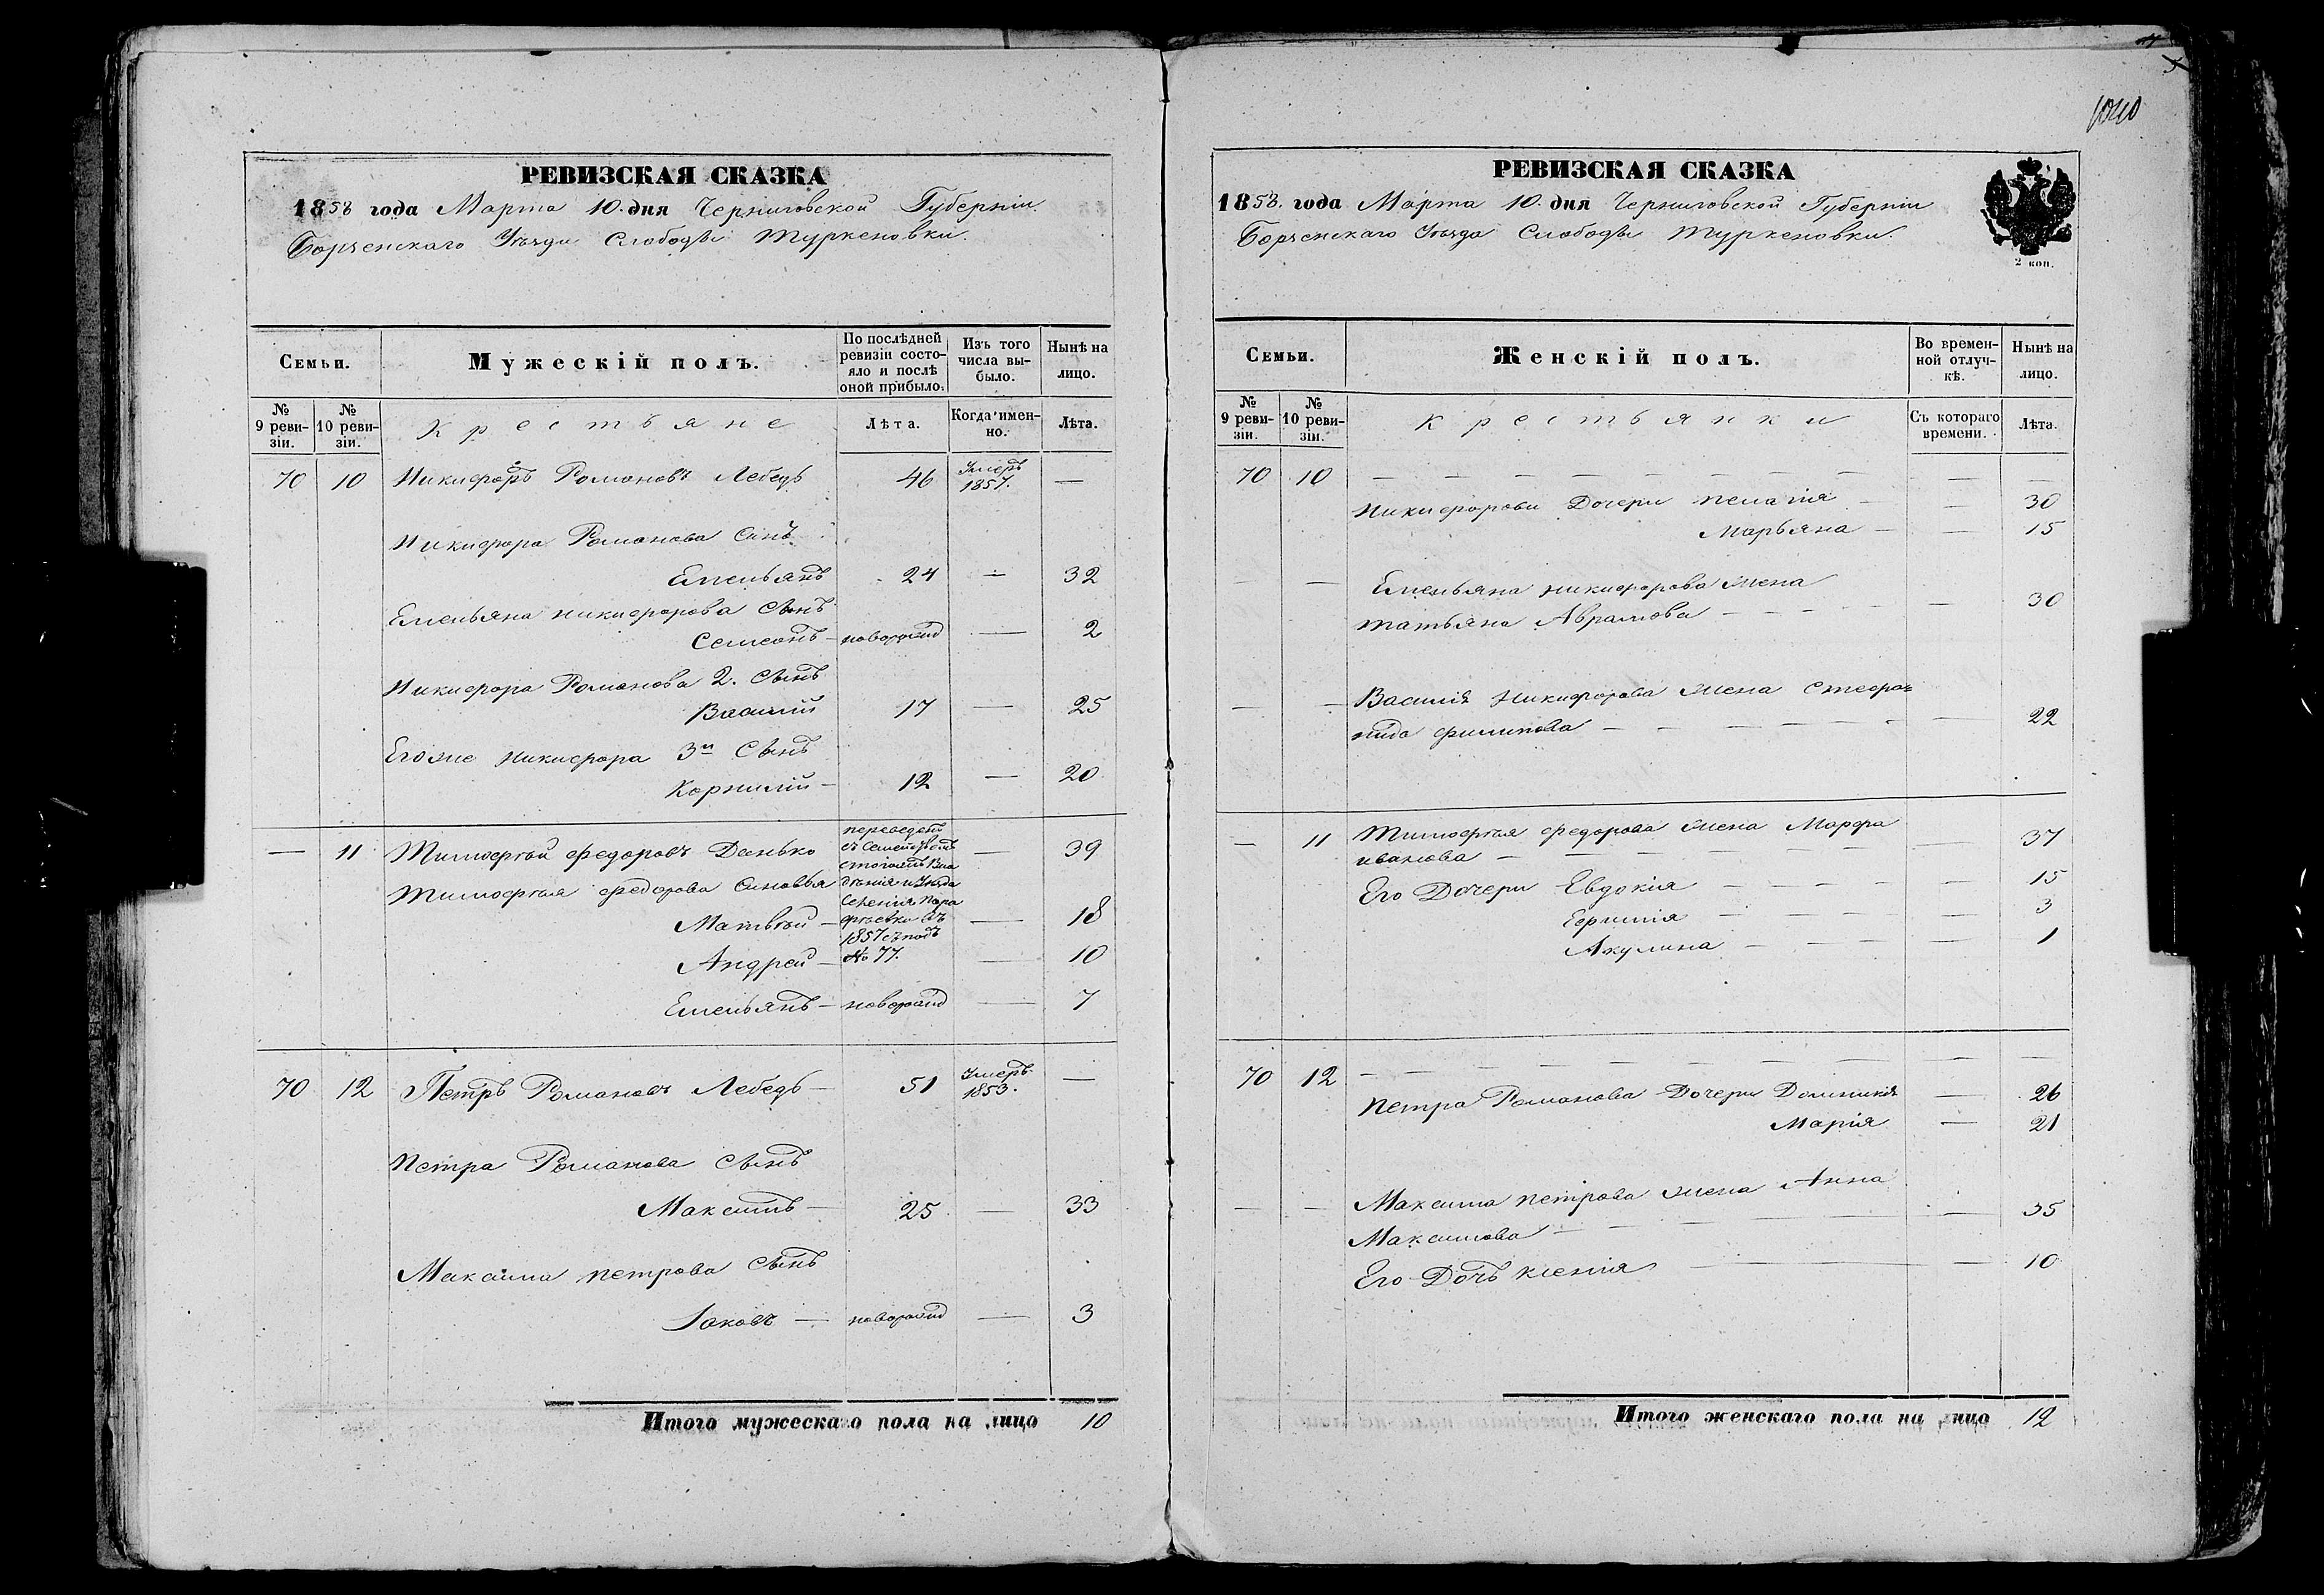 РЕВИЗСКАЯ СКАЗКА
1858 года Марта 10. дня Черниговской Губерніи.
Борзенскаго Уѣзда Слободы Туркеновки.
Семьи.
Мужескій полъ.
По послѣдней ревизіи состояло и послѣ оной прибыло.
Изъ того числа выбыло.
Нынѣ на лицо.
№ 9 ревизіи.
№ 10 ревизіи.
Крестьяне
Лѣта.
Когда имен-
но.
Лѣта.
70 10 Никифоръ Романовъ Лебедь 46 Умеръ 1857. —
Никифора Романова Сынъ
Емельянъ 24 — 32
Емельяна Никифорова Сынъ
Семеонъ — новорожд — 2
Никифора Романова 2. Сынъ
Василій 17 — 25
Егоже Никифора 3й Сынъ
Корнилій — 12 — 20
— 11 Тимофѣй Федоровъ Данько — 39
переведенъ
съ Семействомъ
Тимофѣя Федорова Сыновья
1857 съ подъ
№ 77.
Матвѣй — — 18
Андрей — — 10
Емельянъ — новорожд — 7
70 12 Петръ Романовъ Лебедь — 51 Умеръ 1853. —
Петра Романова Сынъ
Максимъ — 25 — 33
Максима Петрова Сынъ
Іаковъ — новорожд — 3
Итого мужескаго пола на лицо 10
1040
РЕВИЗСКАЯ СКАЗКА
1858. года Марта 10. дня Черниговской Губерніи
Борзенскаго Уѣзда Слободы Туркеновки.
2 коп.
Семьи.
Женскій полъ.
Во времен-
ной отлуч-
кѣ.
Нынѣ на лицо.
№ 9 ревизіи.
№ 10 ревизіи.
Крестьянки
Съ котораго времени.
Лѣта.
70 10 — — — — — — — —
Никифорови Дочери Пелагія — 30
Марьяна — — 15
— — Емельяна Никифорова Жена
Татьяна Аврамова — — — 30
— — Василія Никифорова Жена Стефа-
нида Филипова — — — 22
— 11 Тимофѣя Федорова Жена Марфа
Иванова — — — 37
Его Дочери Евдокія — — — 15
— — — 3
Акулина — — — 1
70 12 — — — — — — — —
Петра Романова Дочери Домникія — 26
Марія — 21
— — Максима Петрова Жена Анна
Максимова — — — 35
Его Дочь Ксенія — — 10
Итого женскаго пола на лицо 12